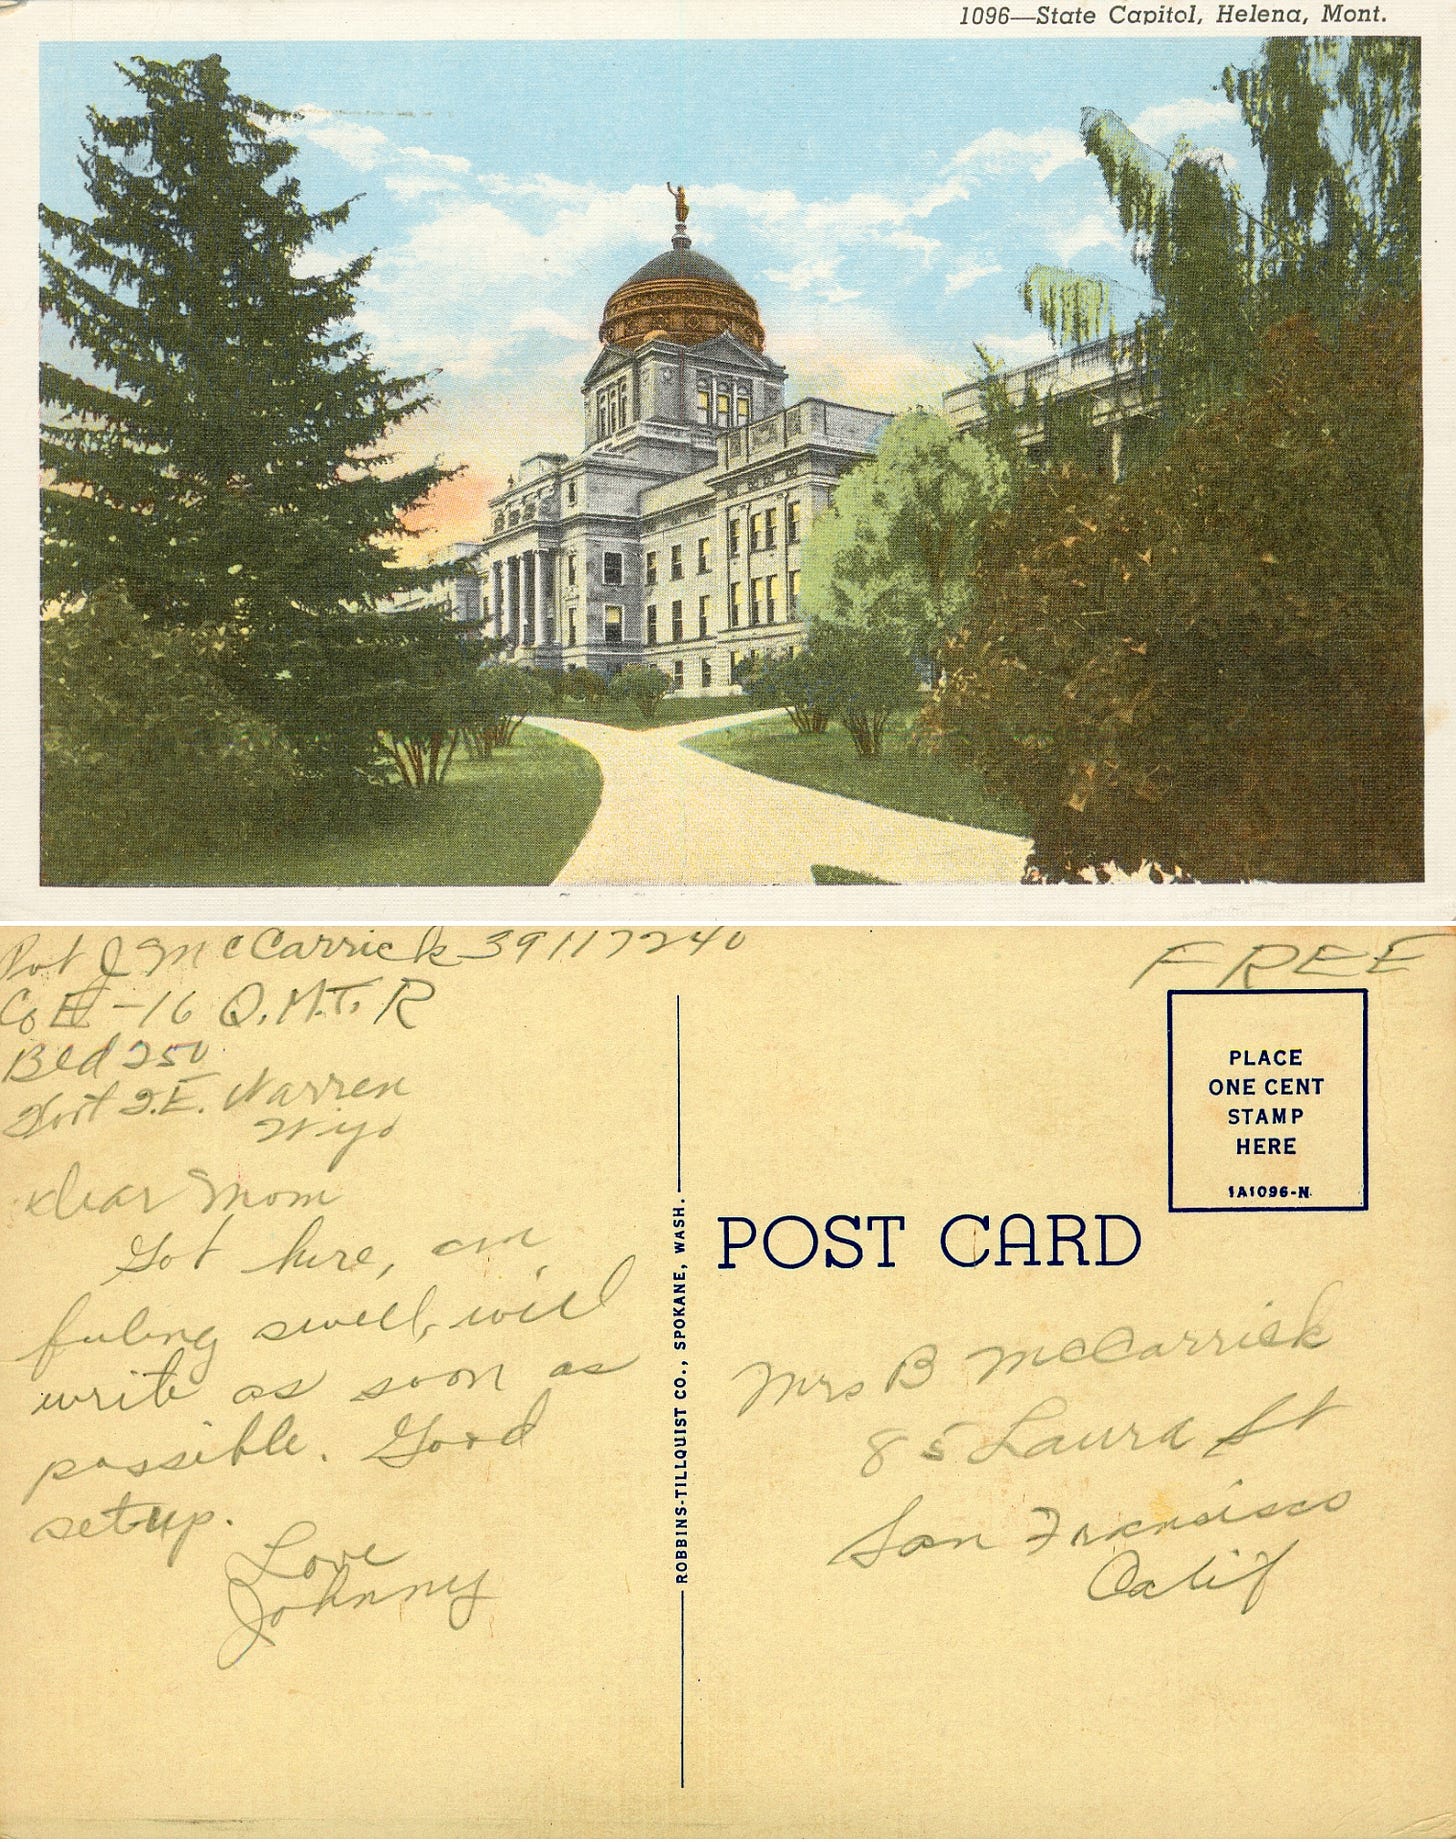 1096—State Capitol, Helena, Mont.
Pvt J McCarrick 39117240
Co E-16 Q.M.T.R
Bld 250
Fort F.E. Warren
Wyo
Dear Mom
Got here, am
feeling swell, will
write as soon as
possible. Good
setup.
Love
Johnny
ROBBINS-TILLQUIST CO., SPOKANE, WASH.
FREE
PLACE
ONE CENT
STAMP
HERE
1A1096-N
POST CARD
Mrs B McCarrick
85 Laura St
San Francisco
Calif